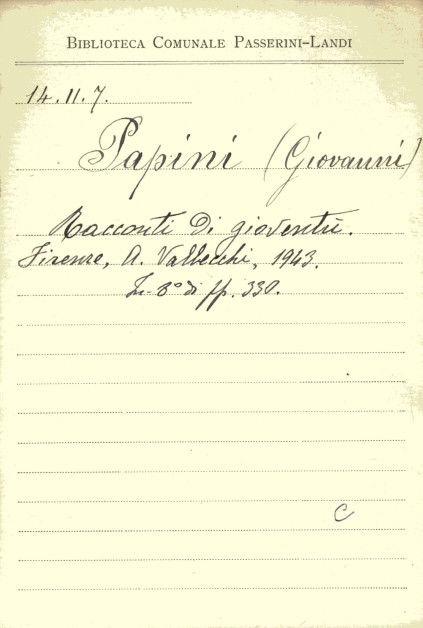 BIBLIOTECA COMUNALE PASSERINI-LANDI
14.11.7.
Papini (Giovanni)
Racconti di gioventù.
Firenze, A. Vallecchi, 1943.
In-8° di pp. 330.
C